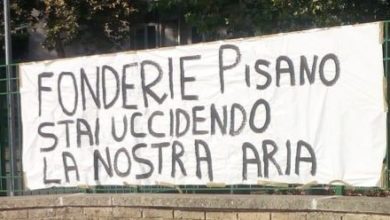 FONDERIE PISANO
STAI UCCIDENDO
LA NOSTRA ARIA